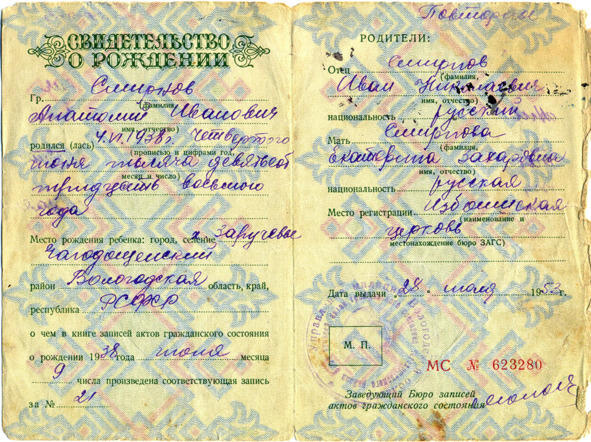 СВИДЕТЕЛЬСТВО
О РОЖДЕНИИ
Гр. Смирнов
(фамилия,
Анатолий Иванович
имя, отчество)
родился (лась) 4.VI.1938г. Четвертого
(прописью и цифрами год,
июня тысяча девятьсот
месяц и число)
тридцать восьмого
года
Место рождения ребенка: город, селение
Чагодощенский
район Вологодская область, край,
республика РСФСР
о чем в книге записей актов гражданского состояния
о рождении 1938 года июня месяца
9 числа произведена соответствующая запись
за № 21
Повторное
РОДИТЕЛИ:
Отец Смирнов
(фамилия,
Иван Николаевич
имя, отчество)
национальность русский
Мать Смирнова
(фамилия,
Екатерина Захаровна
имя, отчество)
национальность русская
Место регистрации
(наименование и
церковь
местонахождение бюро ЗАГС)
Дата выдачи 28 июля 195 г.
М. П.
МС № 623280
Заведующий Бюро записей
актов гражданского состояния